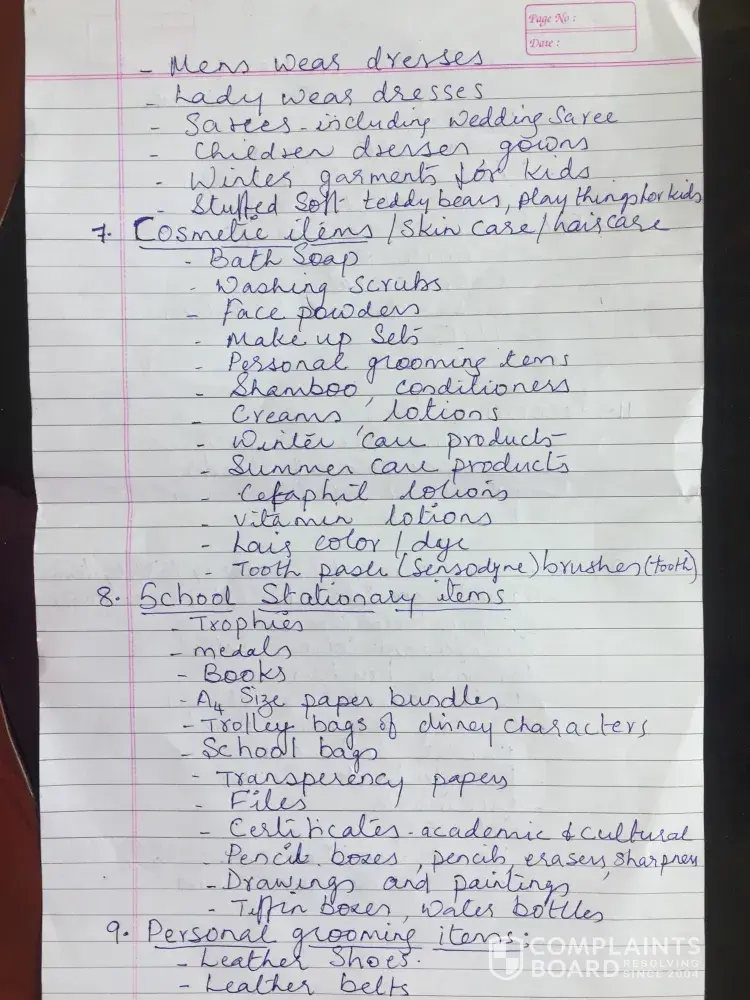 Page No :
Date :
- Mens wear dresses
- Lady wear dresses
- Sarees - including wedding Saree
- Children dresses gowns
- Winter garments for kids
- Stuffed Soft teddy bears, play things for kids
7. Cosmetic items / Skin care / haircare
- Bath Soap
- Washing Scrubs
- Face powders
- Make up Sets
- Personal grooming tems
- Shamboo, conditioners
- Creams, lotions
- Winter care products
- Summer care products
- Cetaphil lotions
- Vitamin lotions
- hair color / dye
- Tooth paste (Sensodyne) brushes (tooth)
8. School Stationary items
- Trophies
- medals
- Books
- A4 Size paper bundles
- Trolley bags of disney characters
- School bags
- Transperency papers
- Files
- Certificates - academic & cultural
- Pencil boxes, pencils, erasers, sharpners
- Drawings and paintings
- Tiffin boxes, water bottles
9. Personal grooming items:
- Leather Shoes.
- Leather belts
COMPLAINTS
BOARD RESOLVING SINCE 2004